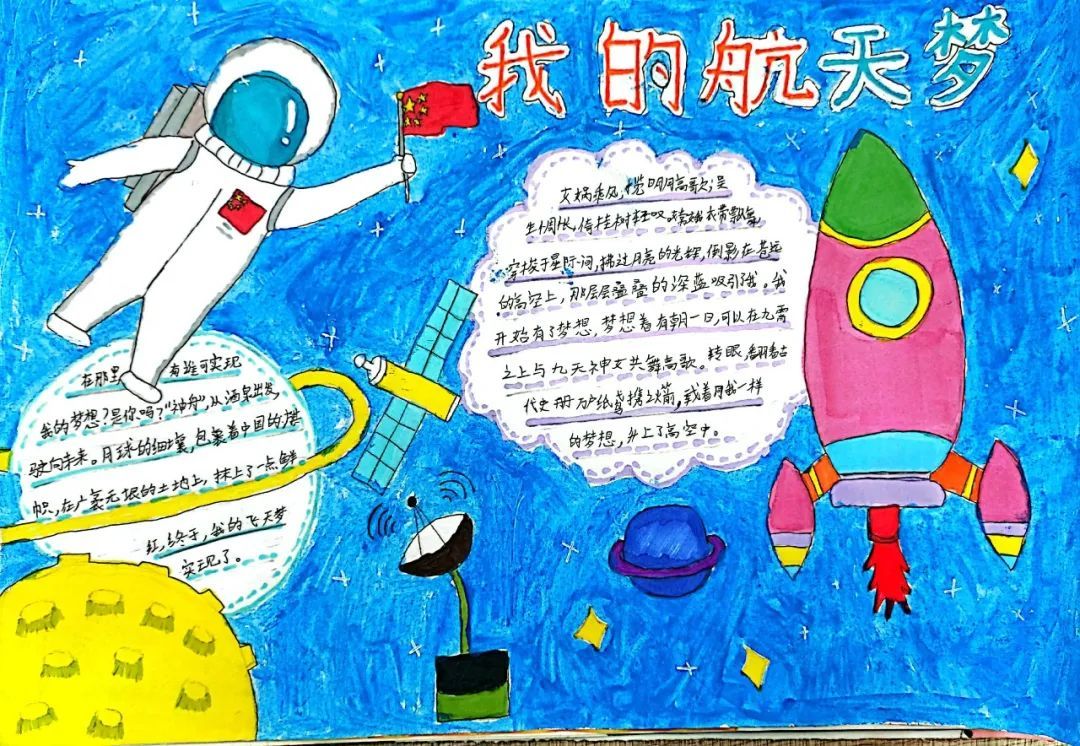 我的航天梦
女娲乘风,揽明月高歌;吴
生惆怅,倚桂树轻叹。嫦娥衣带飘
穿梭于星际间,拂过月亮的光辉,倒影在苍远
的高空上,那层层叠叠的深蓝吸引我。我
开始有了梦想,梦想着有朝一日,可以在九霄
之上与九天神女共舞高歌。转眼,翻
代史册万户纸鸢携火箭,载着同我一样
的梦想,升上了高空中。
在那里 有谁可实现
我的梦想?是你吗?“神舟”,从酒泉出发,
驶向未来。月球的细壤,包裹着中国的旗
帜,在广袤无垠的土地上,抹上了一点鲜
红,终于,我的飞天梦
实现了。